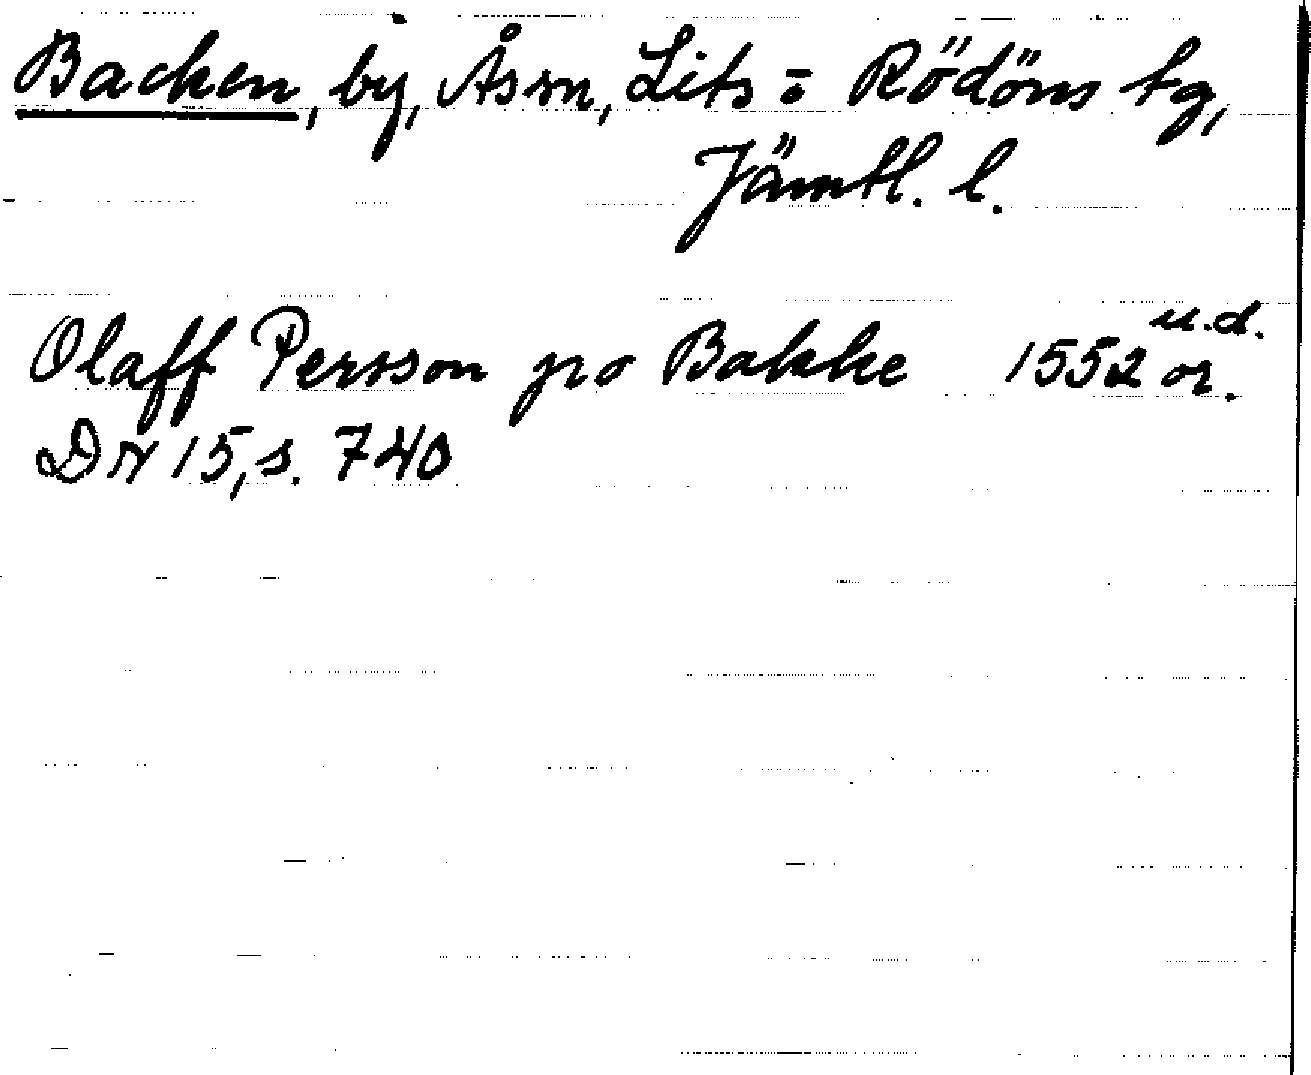 Backen, by, Åsn, Lits = Rödöns tg,
Jämtl. l.
Olaff Persson po Bakke 1552 u.d. or.
DN 15, s. 740